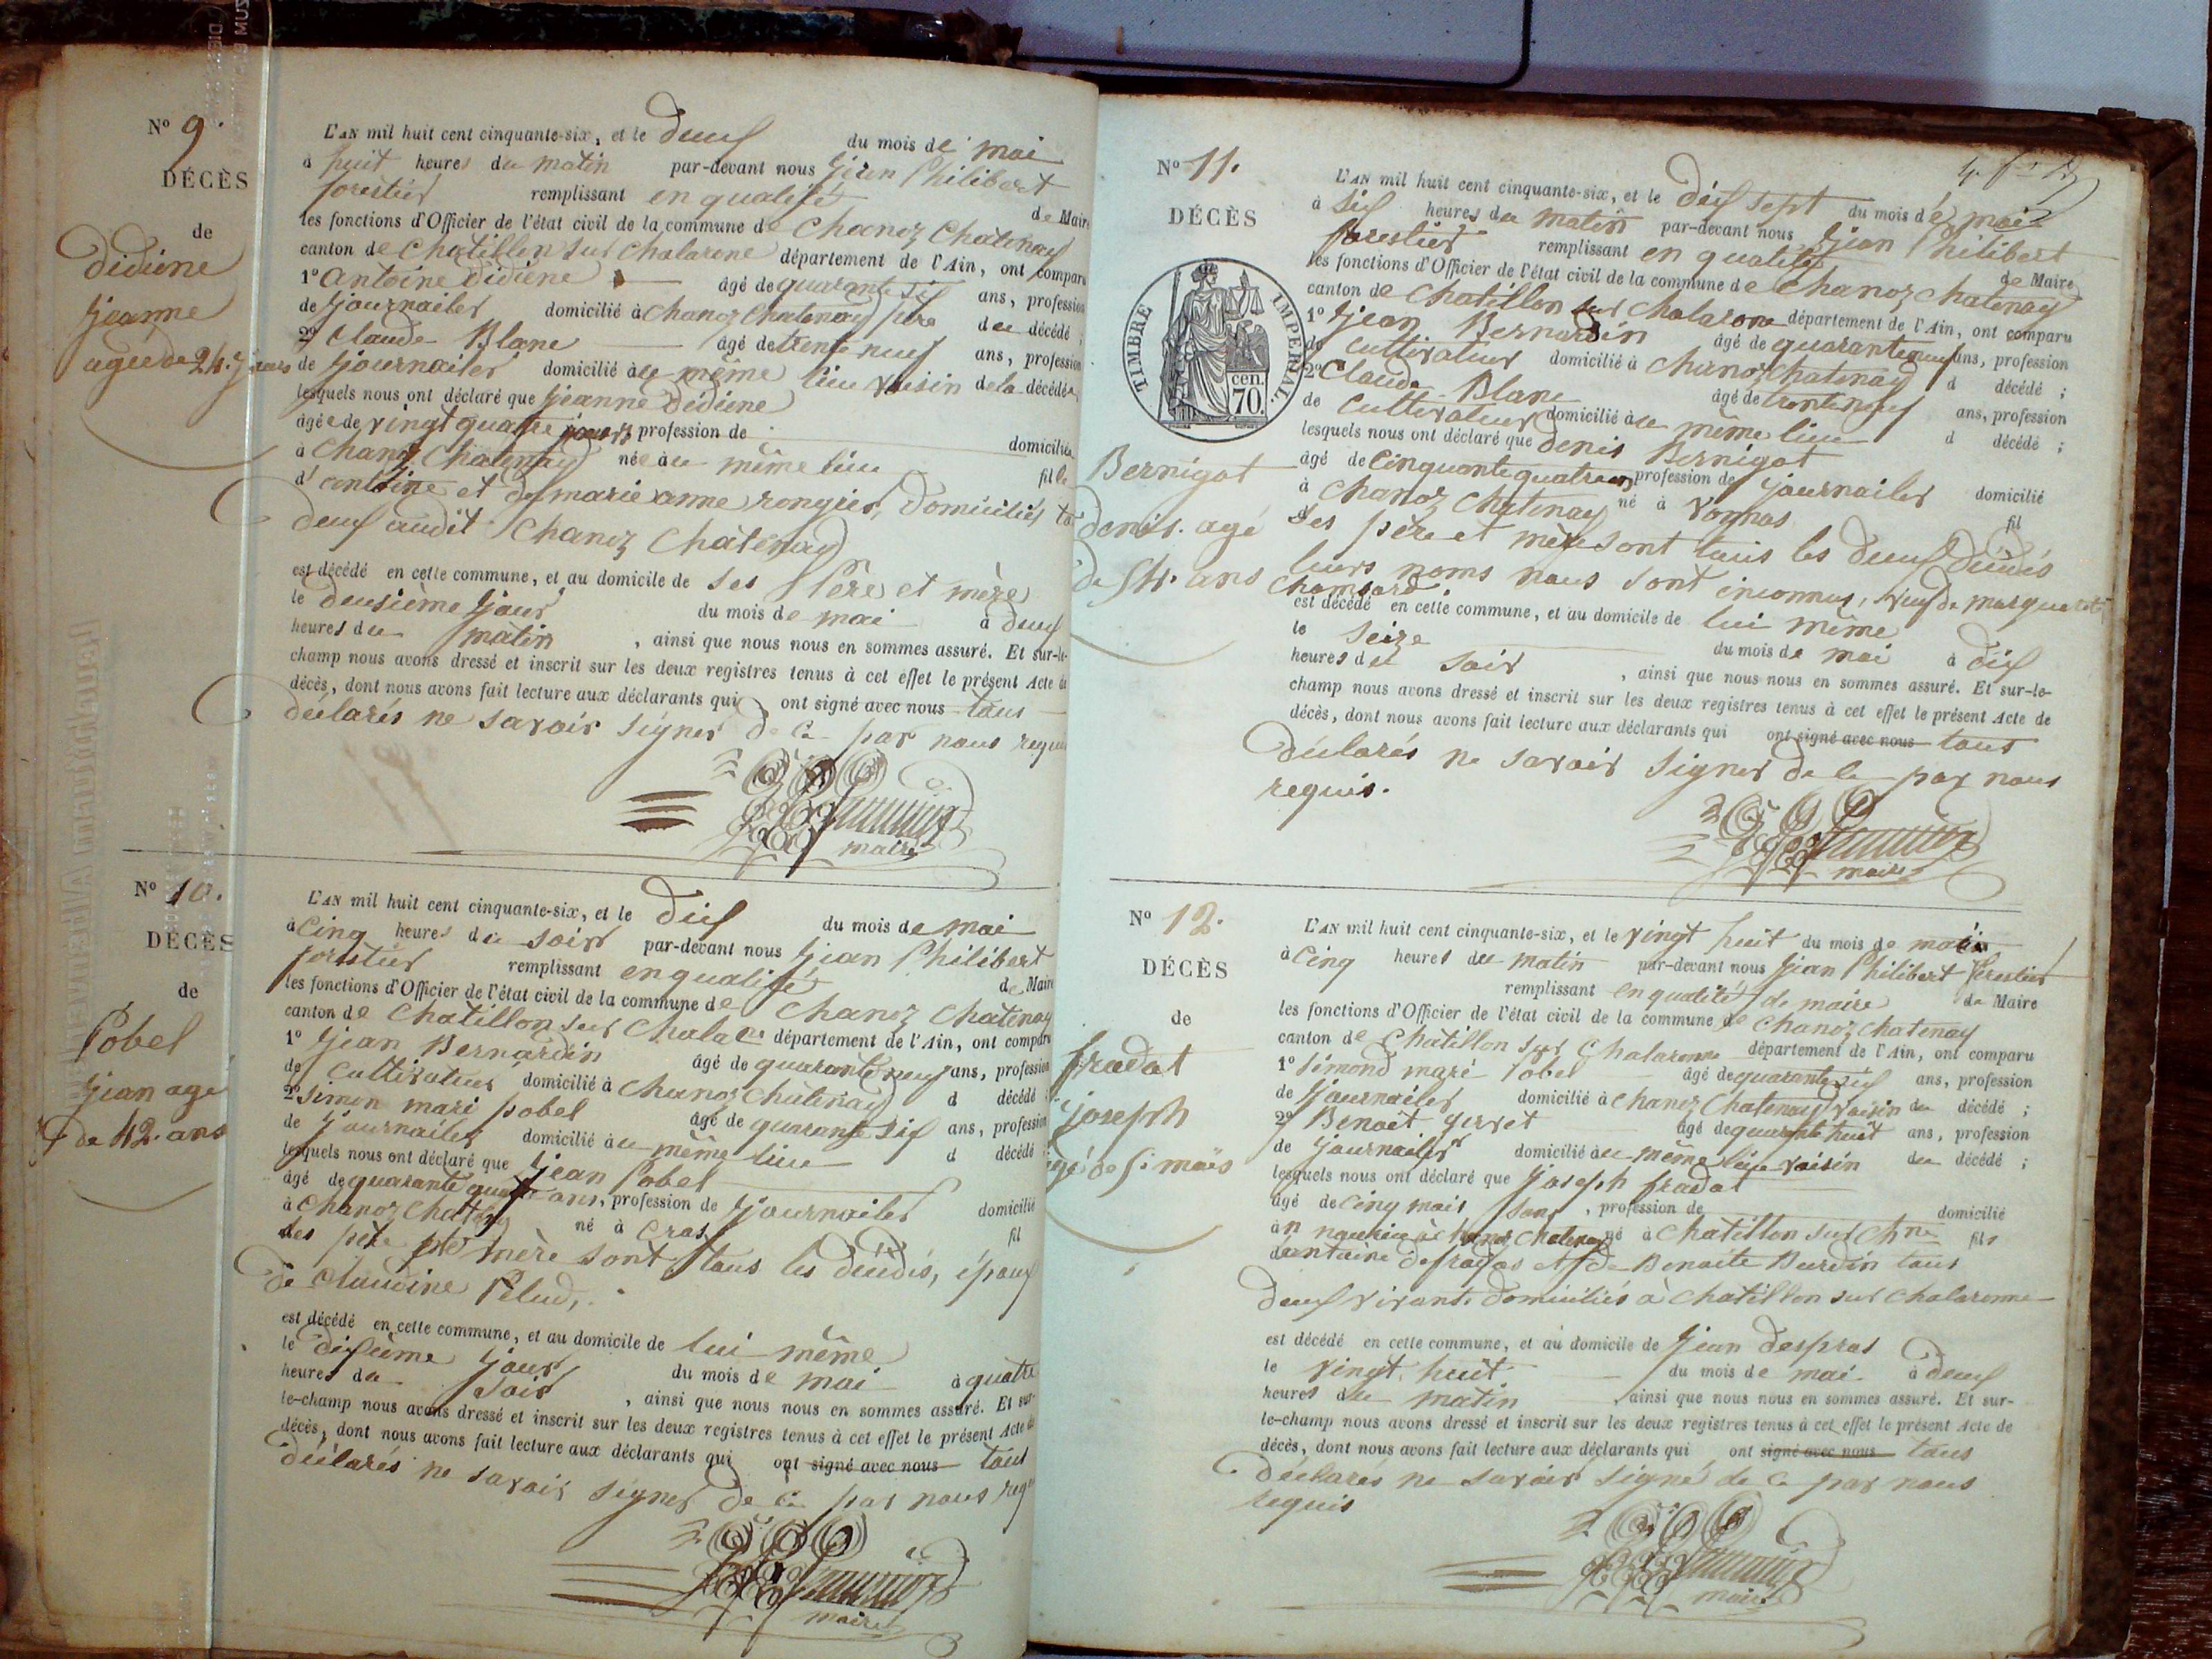 No 9.
DÉCÈS
de
Didiene
Jeanne
agée de 24. jours
L'AN mil huit cent cinquante-six, et le deux du mois de mai
à huit heures du matin par-devant nous Jean Philibert
forestier remplissant en qualité de Maire
les fonctions d'Officier de l'état civil de la commune de Chanoz Chatenay
canton de Chatillon sur Chalarone département de l'Ain, ont comparu
1o antoine Didiene âgé de quarante six ans, profession
de journailer domicilié à Chanoz Chatenay père du décédé ;
2o Claude Blanc âgé de trente neuf ans, profession
de journailer domicilié au même lieu voisin de la décédée
lesquels nous ont déclaré que jeanne didiene
âgée de vingt quatre jours profession de domiciliée
à Chanoz Chatenay née au même lieu fille
d'antoine et de marie anne rongier, domiciliés to
deux audit Chanoz Châtenay
est décédé en cette commune, et au domicile de ses Père et mère
le deusième jour du mois de mai à deux
heures du matin, ainsi que nous nous en sommes assuré. Et sur-le-
champ nous avons dressé et inscrit sur les deux registres tenus à cet effet le présent Acte de
décès, dont nous avons fait lecture aux déclarants qui ont signé avec nous tous
déclarés ne savoir signer de ce par nous requis
maire
No 10.
DÉCÈS
de
Pobel
jean age
de 42. ans
L'AN mil huit cent cinquante-six, et le dix du mois de mai
à Cinq heures du soir par-devant nous Jean Philibert
forestier remplissant en qualité de Maire
les fonctions d'Officier de l'état civil de la commune de Chanoz Chatenay
canton de Chatillon sur Chala département de l'Ain, ont comparu
1o Jean Bernardin âgé de quarante neuf ans, profession
de Cultivateur domicilié à Chanoz Châtenay d décédé ;
2o Simon marie pobel âgé de quarante six ans, profession
de journailer domicilié au même lieu d décédé
lesquels nous ont déclaré que Jean Pobel
âgé de quarante quatre ans, profession de journailer domicilié
à Chanoz Chateny né à Cras fil
ses père et mère sont tous les décédés, époux
de Claudine Pelud,
est décédé en cette commune, et au domicile de lui même
le dixième jour du mois de mai à quatre
heures du soir, ainsi que nous nous en sommes assuré. Et sur-
le-champ nous avons dressé et inscrit sur les deux registres tenus à cet effet le présent Acte de
décès, dont nous avons fait lecture aux déclarants qui ont signé avec nous tous
déclarés ne savoir signer de ce par nous req
maire
No 11.
DÉCÈS
TIMBRE IMPERIAL.
70. cen.
Bernigot
denis. agé
de 54. ans
L'AN mil huit cent cinquante-six, et le dix sept du mois de mai
à six heures du matin par-devant nous Jean Philibert
forestier remplissant en qualité de Maire
les fonctions d'Officier de l'état civil de la commune de Chanoz Chatenay
canton de Chatillon sur Chalarone département de l'Ain, ont comparu
1o Jean Bernardin âgé de quarante neuf ans, profession
de Cultivateur domicilié à Chanoz Chatenay d décédé ;
2o Claude Blanc âgé de trente neuf ans, profession
de Cultivateur domicilié au même lieu d décédé ;
lesquels nous ont déclaré que denis Bernigot
âgé de Cinquante quatre ans profession de journailer domicilié
à Chanoz Chatenay né à Vonnas fil
Ses père et mère sont tous les deux Décédés
leurs noms nous sont inconnus, veuf de marguerite
Chamsard
est décédé en cette commune, et au domicile de lui même
le seize du mois de mai à dix
heures du soir, ainsi que nous nous en sommes assuré. Et sur-le-
champ nous avons dressé et inscrit sur les deux registres tenus à cet effet le présent Acte de
décès, dont nous avons fait lecture aux déclarants qui ont signé avec nous tous
déclarés ne savoir signer de ce par nous
requis.
maire
No 12.
DÉCÈS
de
fradat
joseph
agé de 5. mois
L'AN mil huit cent cinquante-six, et le vingt huit du mois de mai
à Cinq heures du matin par-devant nous Jean Philibert forestier
remplissant en qualité de maire de Maire
les fonctions d'Officier de l'état civil de la commune de Chanoz Chatenay
canton de Châtillon sur Chalaronne département de l'Ain, ont comparu
1o Simond marie Pobel âgé de quarante six ans, profession
de Journailer domicilié à Chanoz Chatenay voisin du décédé ;
2o Benoit âgé de quarante huit ans, profession
de journailer domicilié au même lieu voisin du décédé ;
lesquels nous ont déclaré que Joseph fradat
âgé de Cinq mois sans, profession de domicilié
en à Chanoz Chatenay né à Chatillon sur Chne fils
dantoine et de Benoite Burdin tous
deux vivant. domiciliés à Chatillon sur Chalaronne
est décédé en cette commune, et au domicile de Jean despras
le vingt. huit du mois de mai. à deux
heures du matin, ainsi que nous nous en sommes assuré. Et sur-
le-champ nous avons dressé et inscrit sur les deux registres tenus à cet effet le présent Acte de
décès, dont nous avons fait lecture aux déclarants qui ont signé avec nous tous
déclarés ne savoir signé de ce par nous
requis
maire